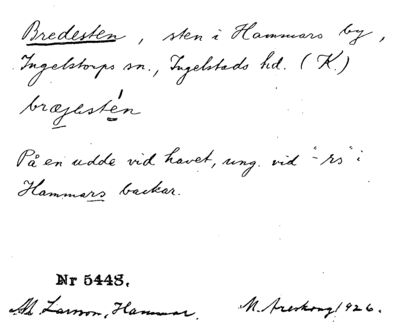 Bredesten, sten i Hammars by,
Ingelstorps sn., Ingelstads hd. (K.)
På en udde vid havet, ung. vid "-rs" i
Hammars backar.
Nr 5448.
Larsson, Hammar. M. Areskoug 1926.